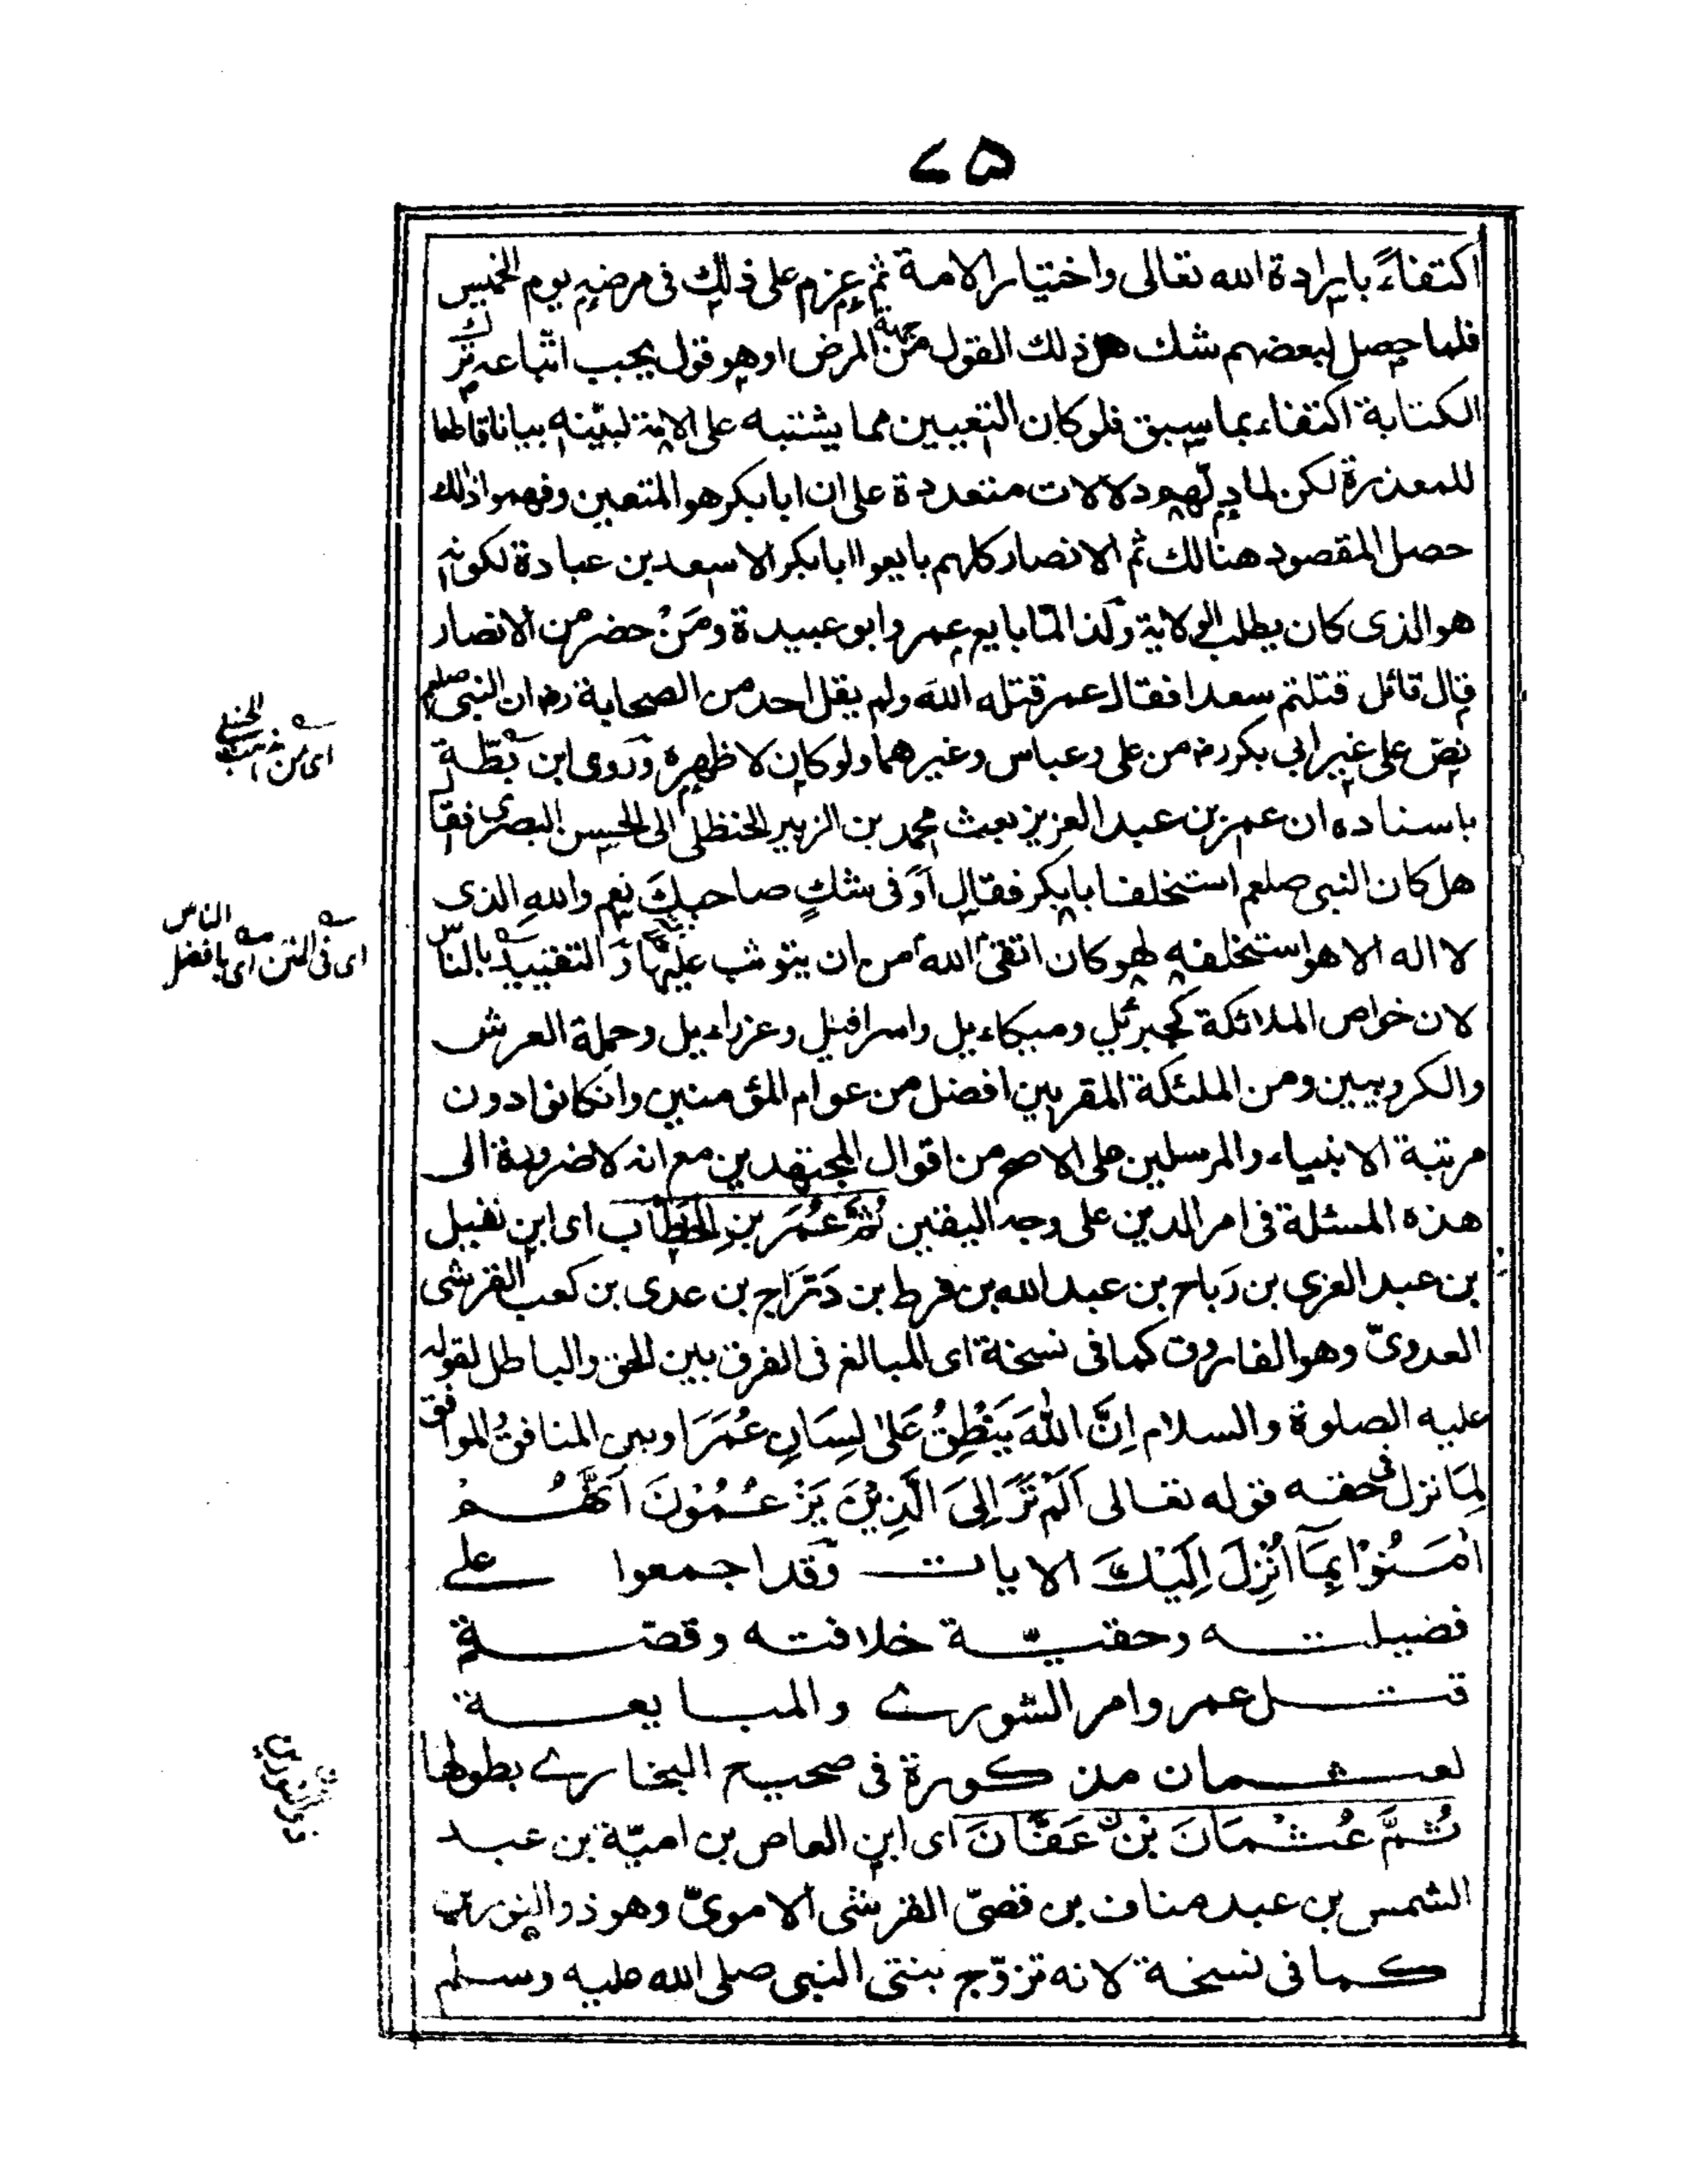 ۷۵
اكتفاءً بايرادة الله تعالى واختيار الامة ثم عزم على ذلك فى مرضه يوم الخميس
فلما حصل لبعضهم شك هل ذلك القول من جهة المرض او هو قول يجب اتباعه ترك
الكتابة اكتفاء بما سبق فلو كان التعيين مما يشتبه على الامة لبيّنه بيانا قاطعا
للمعذرة لكن لما دلّهم دلالات متعددة على ان ابا بكر هو المتعين وفهموا ذلك
حصل المقصود هنالك ثم الانصار كلهم بايعوا ابا بكر الا سعد بن عبادة لكونه
هو الذى كان يطلب الولاية وكذا لمّا بايع عمر وابو عبيدة ومَنْ حضر من الانصار
قال قائل قتلتم سعدا فقال عمر قتله الله ولم يقل احد من الصحابة رض ان النبى صلعم
نصّ على غير ابي بكر رض من على وعباس وغيرهما ولو كان لاظهره وروى ابن بطّة
باسناده ان عمر بن عبد العزيز بعث محمد بن الزبير الحنظلى الى الحسن البصرى فقال
هل كان النبى صلعم استخلف ابا بكر فقال اَوَ فى شكٍ صاحبكَ نعم واللهِ الذى
لا اله الا هو استخلفه لهو كان اتقى الله من ان يتوثب عليها و التقييد بالناس
لان خواص الملائكة كجبرئيل وميكاءيل واسرافيل وعزراءيل وحملة العرش
والكروبيين ومن الملئكة المقربين افضل من عوام المؤمنين وانكانوا دون
مرتبة الانبياء والمرسلين على الاصح من اقوال المجتهدين مع انه لا ضرورة الى
هذه المسئلة فى امر الدين على وجه اليقين ثُمَّ عُمَرَ بنِ الخَطَّاب اى ابن نفيل
بن عبد العزى بن رَباح بن عبد الله بن قرط بن دَرَاج بن عدى بن كعب القرشى
العدوىّ وهو الفاروق كما فى نسخة اى المبالغ فى الفرق بين الحق والباطل لقوله
عليه الصلوة والسلام اِنَّ اللهَ يَنْطِقُ عَلىٰ لِسَانِ عُمَرَ او بين المنافق والموافق
لِمَا نزل فى حقه قوله تعالى اَلَمْ تَرَ اِلىَ الَّذِيْنَ يَزْعُمُوْنَ اَنَّهُمْ
اٰمَنُوْا بِمَآ اُنْزِلَ اِلَيْكَ الايات وقد اجمعوا على
فضيلته وحقيّة خلافته وقصّة
قتل عمر وامر الشورے والمبايعة
لعثمان مذكورة فى صحيح البخارے بطولها
ثُمَّ عُثْمَانَ بْنَ عَفَّانَ اى ابن العاص بن اميّة بن عبد
الشمس بن عبد مناف بن قصىّ القرشى الاموىّ وهو ذو النورين
كما فى نسخة لانه تزوّج ببنتى النبى صلى الله عليه وسلم
اى من مذهب الحنبلى
اى فى المتن اى بافضل الناس
ذى النورين